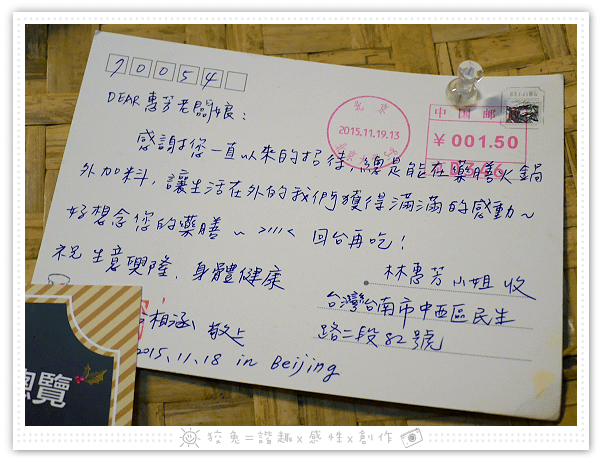 70054
DEAR 惠芳老闆娘：
感謝您一直以來的招待，總是能在藥膳火鍋
外加料，讓生活在外的我們獲得滿滿的感動～
好想念您的藥膳～ >///< 回台再吃！
祝 生意興隆、身體健康
相涵 敬上
2015.11.18 in Beijing
林惠芳 小姐 收
台灣台南市中西區民生
路二段82號
北京
2015.11.19.13
中国邮
¥001.50
總覽
狡兔=諧趣x感性x創作